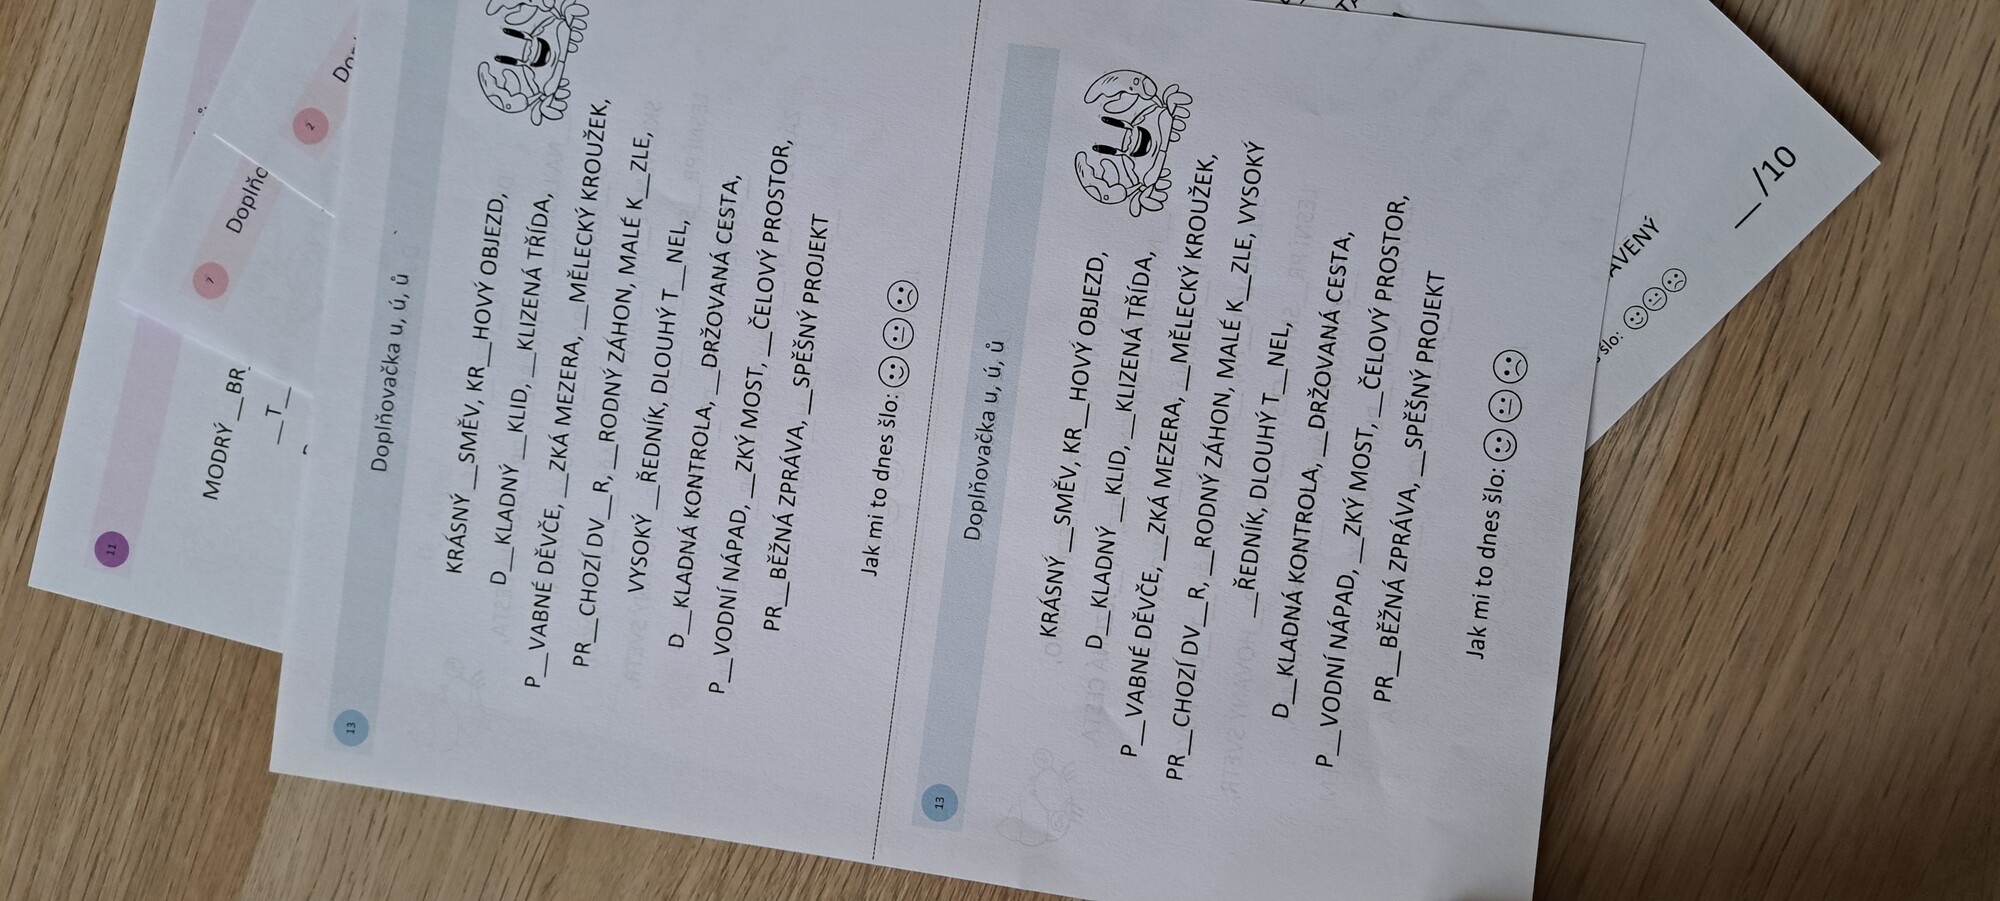 11
MODRÝ __BR
__T__
7
Doplňo
2
Dop
13
Doplňovačka u, ú, ů
KRÁSNÝ __SMĚV, KR__HOVÝ OBJEZD,
D__KLADNÝ __KLID, __KLIZENÁ TŘÍDA,
P__VABNÉ DĚVČE, __ZKÁ MEZERA, __MĚLECKÝ KROUŽEK,
PR__CHOZÍ DV__R, __RODNÝ ZÁHON, MALÉ K__ZLE,
VYSOKÝ __ŘEDNÍK, DLOUHÝ T__NEL,
D__KLADNÁ KONTROLA, __DRŽOVANÁ CESTA,
P__VODNÍ NÁPAD, __ZKÝ MOST, __ČELOVÝ PROSTOR,
PR__BĚŽNÁ ZPRÁVA, __SPĚŠNÝ PROJEKT
Jak mi to dnes šlo:
13
Doplňovačka u, ú, ů
KRÁSNÝ __SMĚV, KR__HOVÝ OBJEZD,
D__KLADNÝ __KLID, __KLIZENÁ TŘÍDA,
P__VABNÉ DĚVČE, __ZKÁ MEZERA, __MĚLECKÝ KROUŽEK,
PR__CHOZÍ DV__R, __RODNÝ ZÁHON, MALÉ K__ZLE, VYSOKÝ
__ŘEDNÍK, DLOUHÝ T__NEL,
D__KLADNÁ KONTROLA, __DRŽOVANÁ CESTA,
P__VODNÍ NÁPAD, __ZKÝ MOST, __ČELOVÝ PROSTOR,
PR__BĚŽNÁ ZPRÁVA, __SPĚŠNÝ PROJEKT
Jak mi to dnes šlo:
AVENÝ
šlo:
__/10